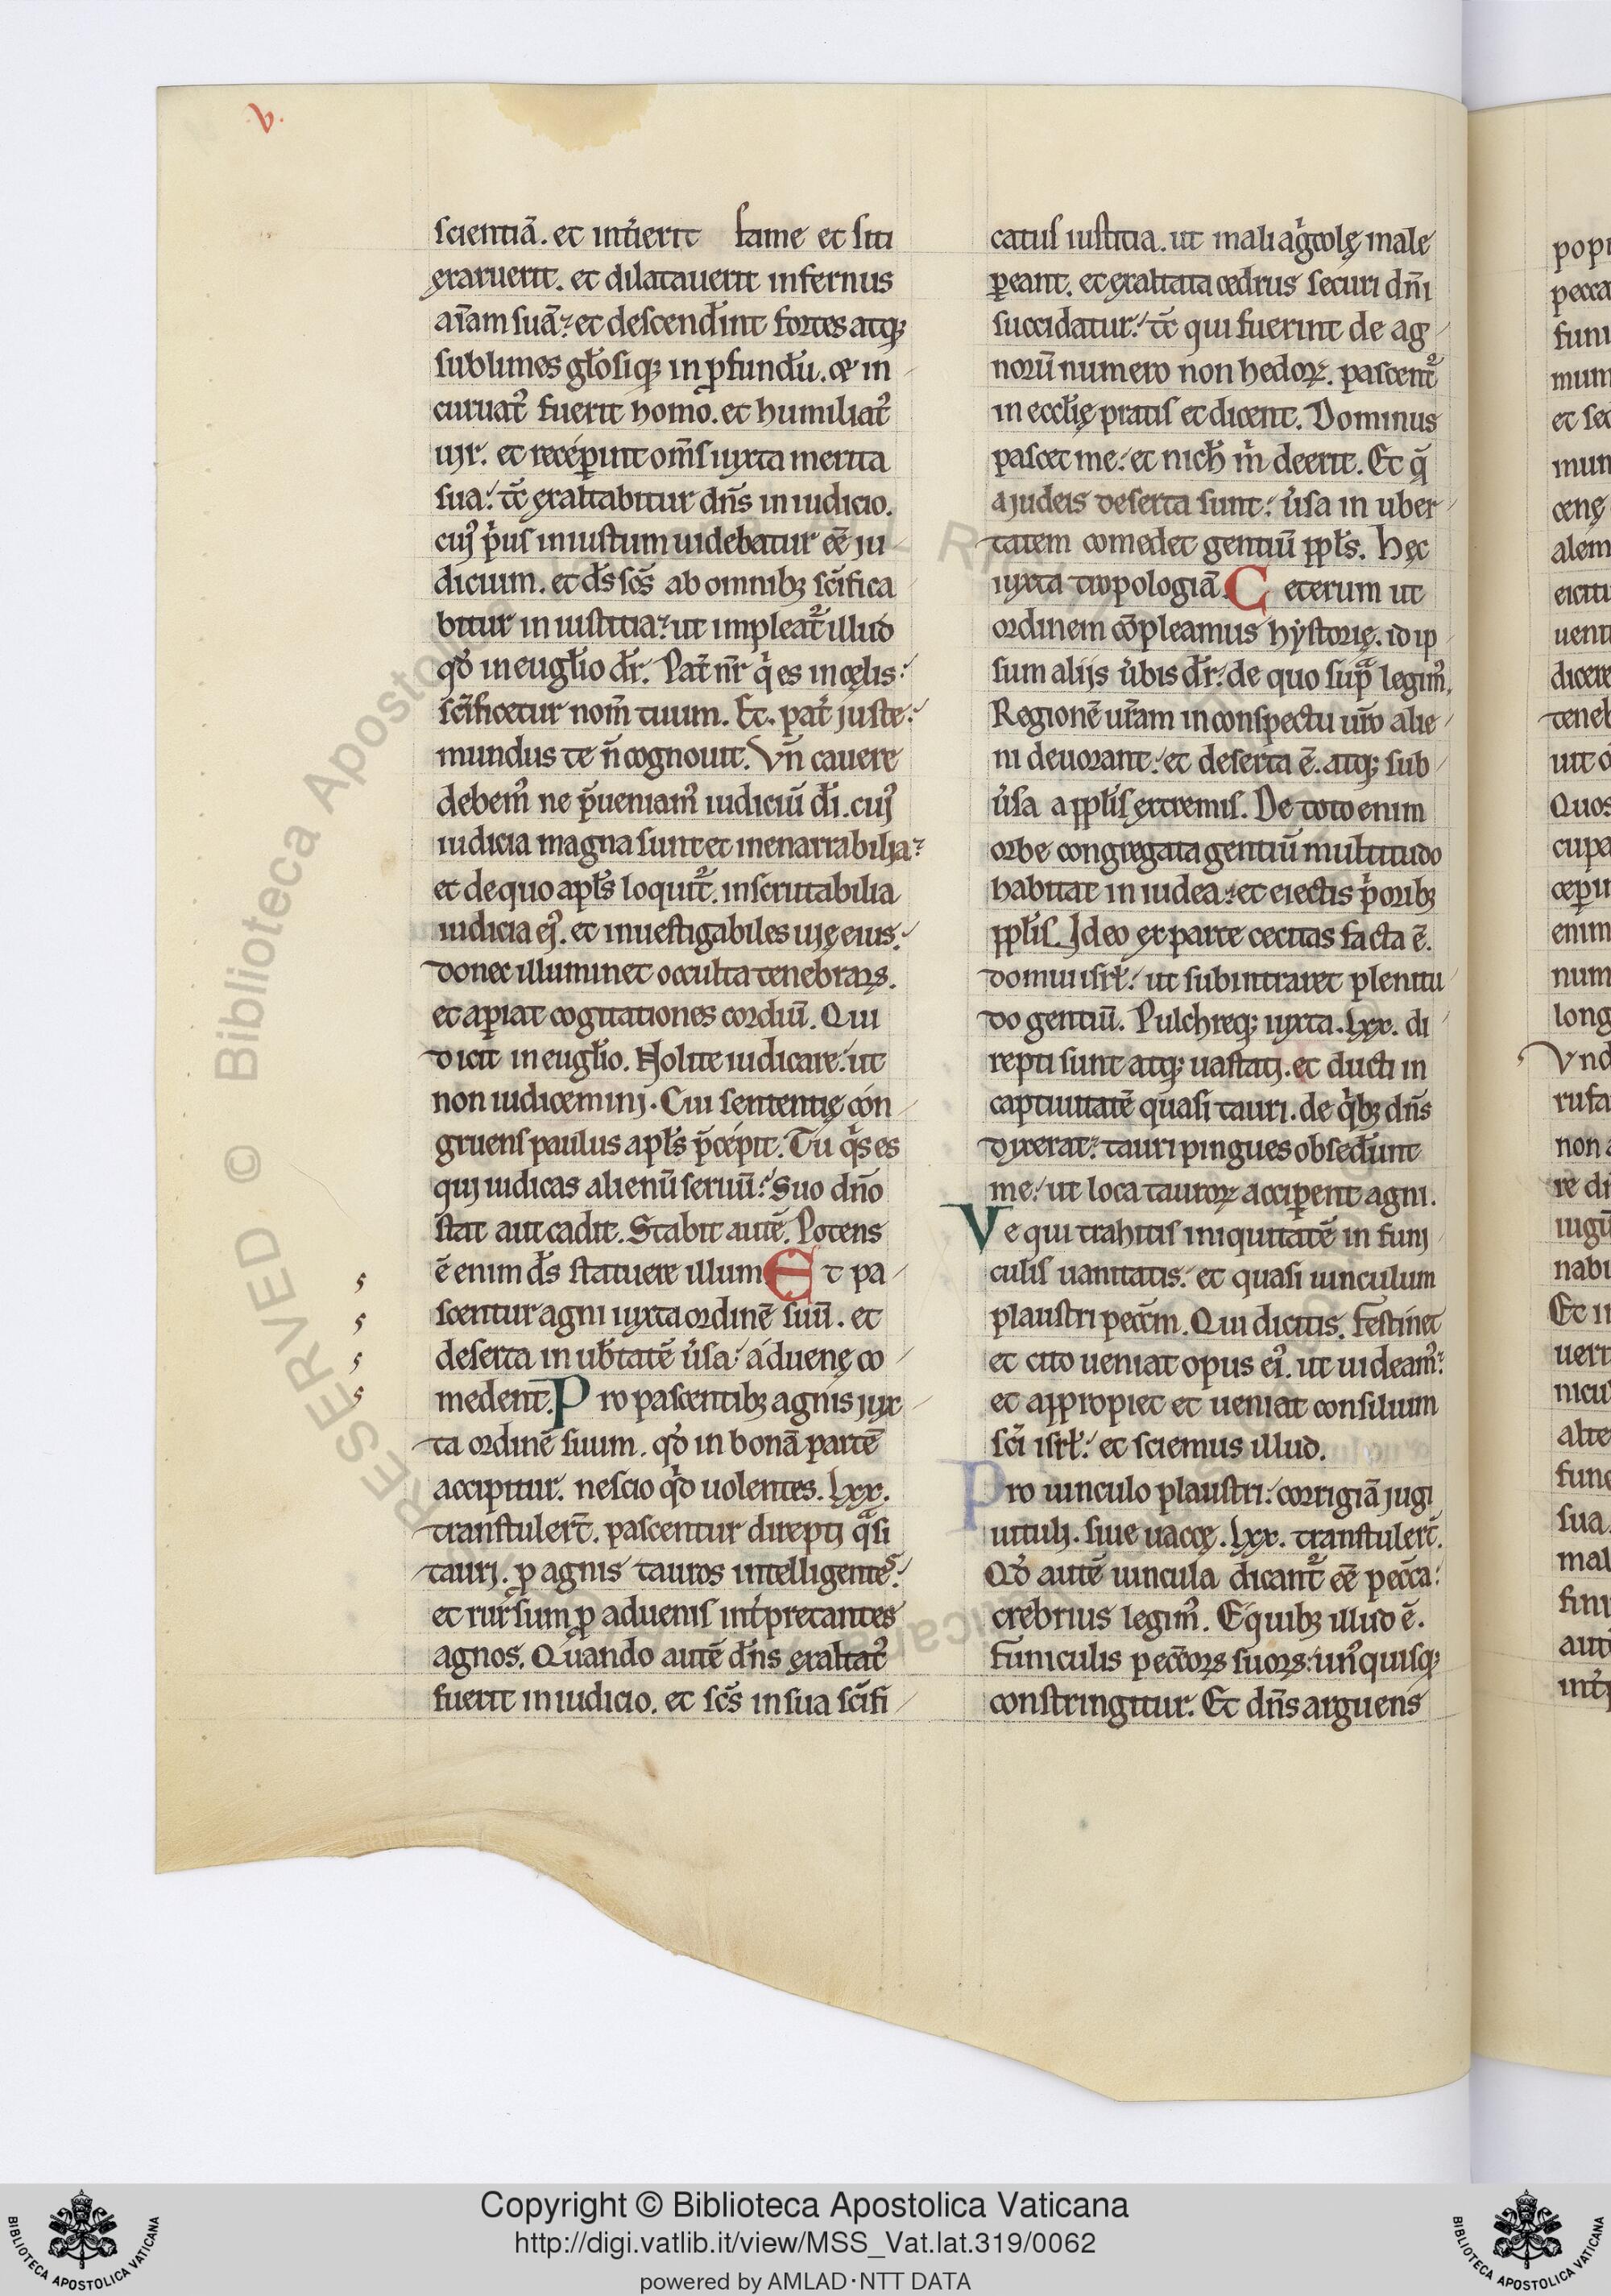 v.
scientiā. et int̓ierit fame et siti
exaruerit. et dilatauerit infernus
aīam suā. et descend̓int fortes atq;
sublimes gl̓osiq; in ꝓfundū. et in
curuat᷒ fuerit homo. et humiliat᷒
uir. et recéperit om̄s iuxta merita
sua. tc̄ exaltabitur dn̄s in iudicio.
cui᷒ p̓us iniustum uidebatur ēē iu
dicium. et ds̄ scs̄ ab omnib; sc̄ifica
bitur in iustitia. ut impleat᷑ illud
qd̓ in eugl̓io dr̄. Pat̓ nr̄ q̓ es in cęlis.
sc̄ificetur nom̄ tuum. Et. pat̓ juste.
mundus te n̄ cognouit. Vn̄ cauere
debem᷒ ne p̄ueniam᷒ iudiciū dī. cui᷒
iudicia magna sunt et inenarrabilia.
et de quo apl̓s loquit᷑. inscrutabilia
iudicia ei᷒. et inuestigabiles uię eius.
donec illuminet occulta tenebraꝝ.
et apiat cogitationes cordiū. Qui
dicit in eugl̓io. Nolite iudicare. ut
non iudicemini. Cui sententię con
gruens paulus apl̓s p̄cépit. Tu q̓s es
qui iudicas alienū seruū. Suo dn̄o
stat aut cadit. Stabit autē. Potens
ē enim ds̄ statuere illum Et pa
scentur agni iuxta ordinē suū. et
deserta in ub̓tatē u̓sa. aduenę co
medent. Pro pascentib; agnis jux
ta ordinē suum. qd̓ in bonā partē
accipitur. nescio q̓d uolentes. lxx.
transtulert̄. pascentur direpti q̓si
tauri. ꝓ agnis tauros intelligentes.
et rursum ꝓ aduenis int̓pretantes
agnos. Quando autē dn̄s exaltat᷒
fuerit in iudicio. et scs̄ in sua sc̄ifi
catus iustitia. ut mali ag̓colę male
ꝑeant. et exaltata cedrus securi dn̄i
succidatur. tc̄ qui fuerint de ag
norū numero non hedoꝝ. pascent᷑
in eccl̓ię pratis et dicent. Dominus
pascet me. et nich̓ m̓ deerit. Et q̄
a judeis deserta sunt. u̓sa in uber
tatem comedet gentiū ppl̓s. hęc
iuxta tropologiā. Ceterum ut
ordinem cōpleamus hystorię. id ip
sum alijs u̓bis dr̄. de quo sup̄ legim᷒.
Regionē ur̄am in conspectu ur̄o alie
ni deuorant. et deserta ē. atq; sub
u̓sa a ppl̓is extremis. De toto enim
orbe congregata gentiū multitudo
habitat in iudea. et eiectis p̓orib;
ppl̓is. Ideo ex parte cecitas facta ē.
domui isrl̓. ut subintraret plenitu
do gentiū. Pulchreq; iuxta. lxx. di
repti sunt atq; uastati. et ducti in
captiuitatē quasi tauri. de q̓b; dn̄s
dixerat. tauri pingues obsed̓unt
me. ut loca tauroꝝ acciꝑent agni.
Ve qui trahitis iniquitatē in funi
culis uanitatis. et quasi uinculum
plaustri pecc̄m. Qui dicitis. Festinet
et cito ueniat opus ei᷒. ut uideam᷒.
et appropiet et ueniat consilium
sc̄i isrl̓. et sciemus illud.
Pro uinculo plaustri. corrigiā jugi
uituli. siue uaccę. lxx. transtulert̄.
Qd̓ autē uincula dicant᷑ ēē pecc̄a.
crebrius legim᷒. E quib; illud ē.
Funiculis pecc̄oꝝ suoꝝ. un᷒quisq;
constringitur. Et dn̄s arguens
popu
pecca
funi
mun
et sed
mun
cenę
alem
eiciti
ueni
dicere
teneb
uit
Quos
cupa
ceꝑi
enim
num
long
Vnd
rufa
non a
re di
iugū
nabi
Et in
uert
nicu
alte
fune
sua
mal
fini
aut
int̓p
© Biblioteca Apostolica Vaticana ALL RIGHTS RESERVED
Copyright © Biblioteca Apostolica Vaticana
http://digi.vatlib.it/view/MSS_Vat.lat.319/0062
powered by AMLAD·NTT DATA
BIBLIOTECA APOSTOLICA VATICANA
BIBLIOTECA APOSTOLICA VATICANA